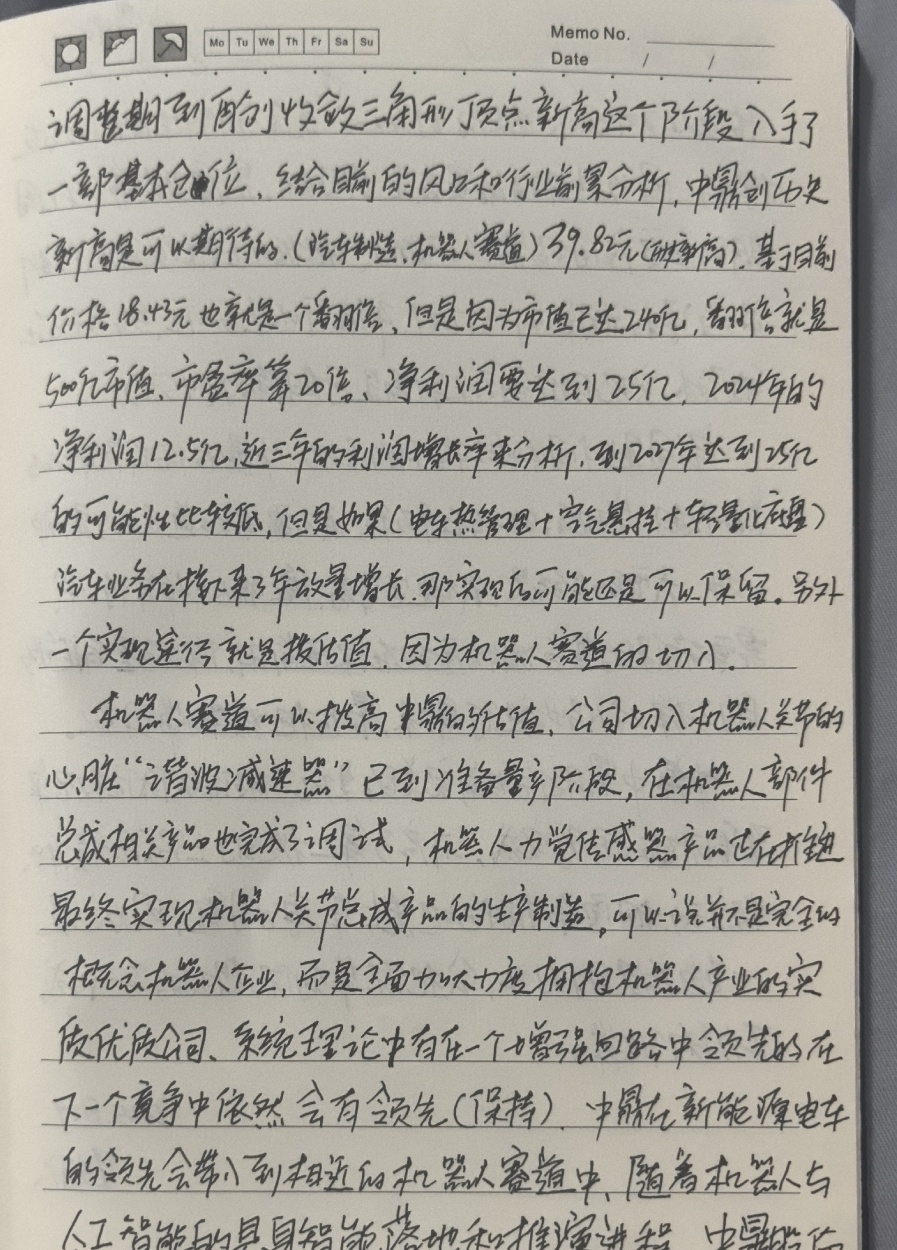 Mo Tu We Th Fr Sa Su
Memo No.
Date / /
调整期到再创收敛三角形顶点新高这个阶段入手了
一部基本仓位、结合目前的风口和行业前景分析,中鼎创历史
新高是可以期待的.(汽车制造、机器人赛道)39.82元(历史新高).基于目前
价格18.43元也就是一个翻倍、但是因为市值已达240亿,翻倍就是
500亿市值、市盈率算20倍、净利润要达到25亿,2024年的
净利润12.5亿,近三年的利润增长率来分析.到2027年达到25亿
的可能性比较低,但是如果(电车热管理+空气悬挂+轻量化底盘)
汽车业务在接下来3年放量增长.那实现的可能还是可以保留。另外
一个实现途径就是拔估值.因为机器人赛道的切入.
机器人赛道可以拔高中鼎的估值、公司切入机器人关节的
心脏“谐波减速器”已到准备量产阶段,在机器人部件
总成相关产品也完成了调试,机器人力觉传感器产品正在推进
最终实现机器人关节总成产品的生产制造,可以说并不是完全的
概念机器人企业,而是全面加大力度拥抱机器人产业的实
质优质公司、系统理论中有在一个增强回路中领先的在
下一个竞争中依然会有领先(保持).中鼎在新能源电车
的领先会带入到相近的机器人赛道中、随着机器人与
人工智能的具身智能落地和推演进程、中鼎